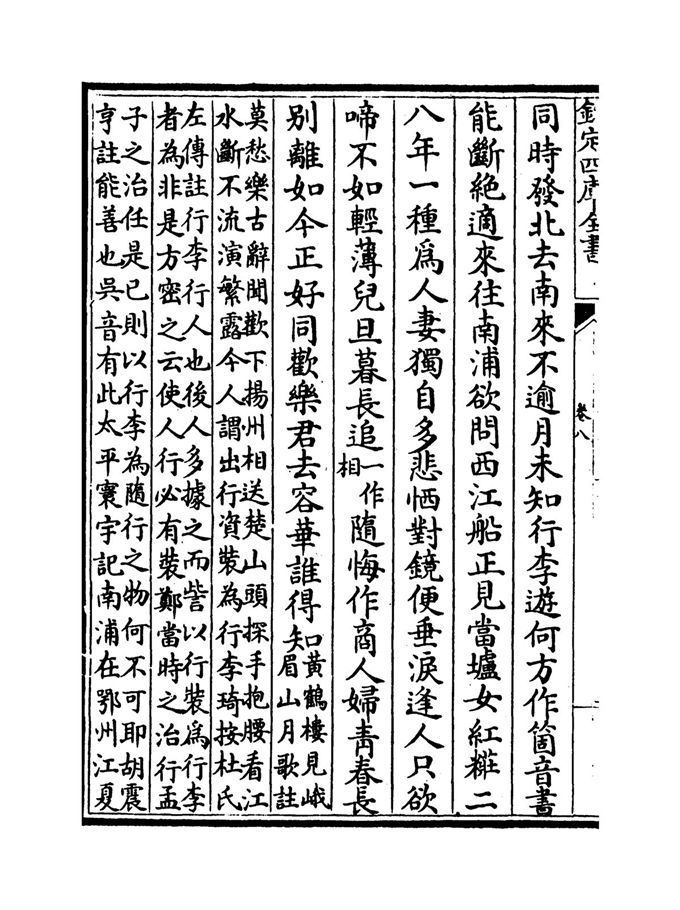 欽定四庫全書
卷八
同時發北去南來不逾月未知行李遊何方作箇音書
能斷絕適來往南浦欲問西江船正見當壚女紅糚二
八年一種爲人妻獨自多悲恓對鏡便垂淚逢人只欲
啼不如輕薄兒旦暮長追一作相隨悔作商人婦青春長
別離如今正好同歡樂君去容華誰得知黃鶴樓見峨眉山月歌註
莫愁樂古辭聞歡下揚州相送楚山頭探手抱腰看江
水斷不流演繁露今人謂出行資裝為行李琦按杜氏
左傳註行李行人也後人多據之而訾以行裝爲行李
者為非是方密之云使人行必有裝鄭當時之治行孟
子之治任是已則以行李為隨行之物何不可耶胡震
亨註能善也吳音有此太平寰宇記南浦在鄂州江夏